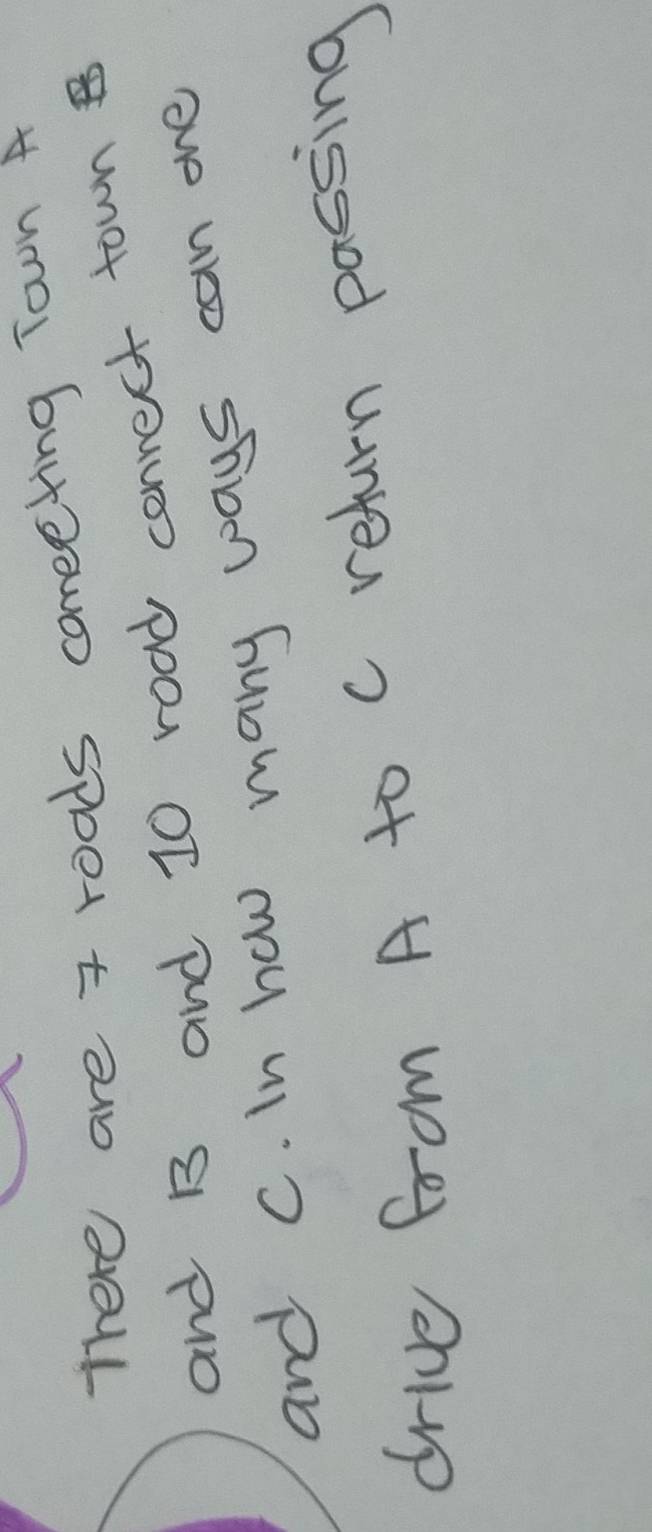 There are 7 roads connecting Town A
and B and 10 road connect town B
and C. In how many ways can one
drive from A to C return passing